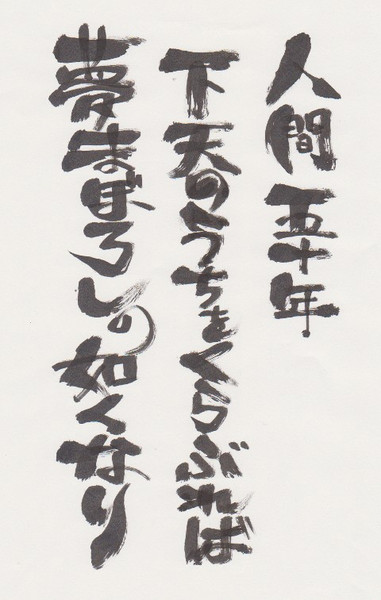 人間五十年
下天のうちをくらぶれば
夢まぼろしの如くなり